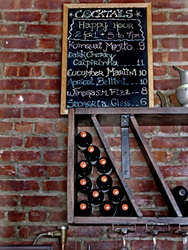 COCKTAILS
Happy Hour
2 for 1 5 to 7pm
Kumquat Mojito 9
Dark Cherry
Caipirinha ... 11
Cucumber Martini 10
Apricot Bellini 10
Fizz 8
Sangria Glass 6